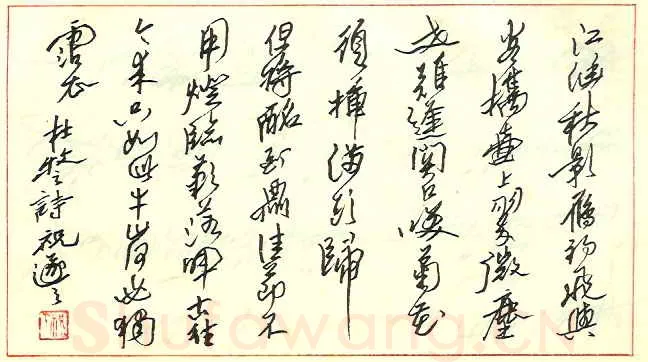 江涵秋影雁初飛與
客攜壺上翠微塵
世難逢開口笑菊花
須插滿頭歸
但將酩酊酬佳節不
用登臨歎落暉古往
今來只如此牛山何必獨
霑衣 杜牧之詩 祝遂之
Shufawang.CN